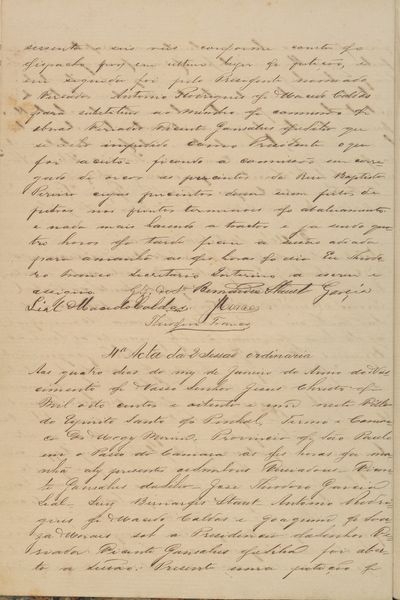 sessenta e seis reis conforme consta do
despacho por em ultimo lugar da petição, e
em seguida foi pelo Presidente nomeado
Vereador Antonio Rodrigues de Macedo Caldas
para substituir ao Membro da commissão de
obras Vereador Vicente Gonsalves que
se impedido como Presidente e que
foi aceito ficando a commissão
de a Rua Baptista
Pereira cujas
pedras nos pontos terminaes do abaulamento
e nada mais havendo a tractar e ja sendo qua
tro horas da tarde ficou a sessão adiada
para amanhã as dez horas do dia Eu Theodo
ro Franco Secretario Interino a escrevi e
assigno. Bernardes Staut Garcia
Leal Macedo Caldas Moraes
Theodoro Franco
4ª Acta da 2ª Sessão ordinaria
Aos quatro dias do mez de Janeiro do Anno do Nas
cimento de Nosso Senhor Jesus Christo de
Mil oito centos e oitenta e um nesta Villa
do Espirito Santo do Pinhal, Termo e Comar
ca de Mogy Mirim, Provincia de São Paulo
em o Paço da Camara as dez horas da ma
nhã ahi presentes os Vereadores Vicen
te Gonsalves da Silva José Theodoro Garcia
Leal, Luiz Bernardes Staut Antonio Rodri
gues de Macedo Caldas e Joaquim de Sou
za Moraes sob a Presidencia do Senhor Ve
reador Vicente Gonsalves da Silva foi aber
ta a Sessão: Presente uma petição de